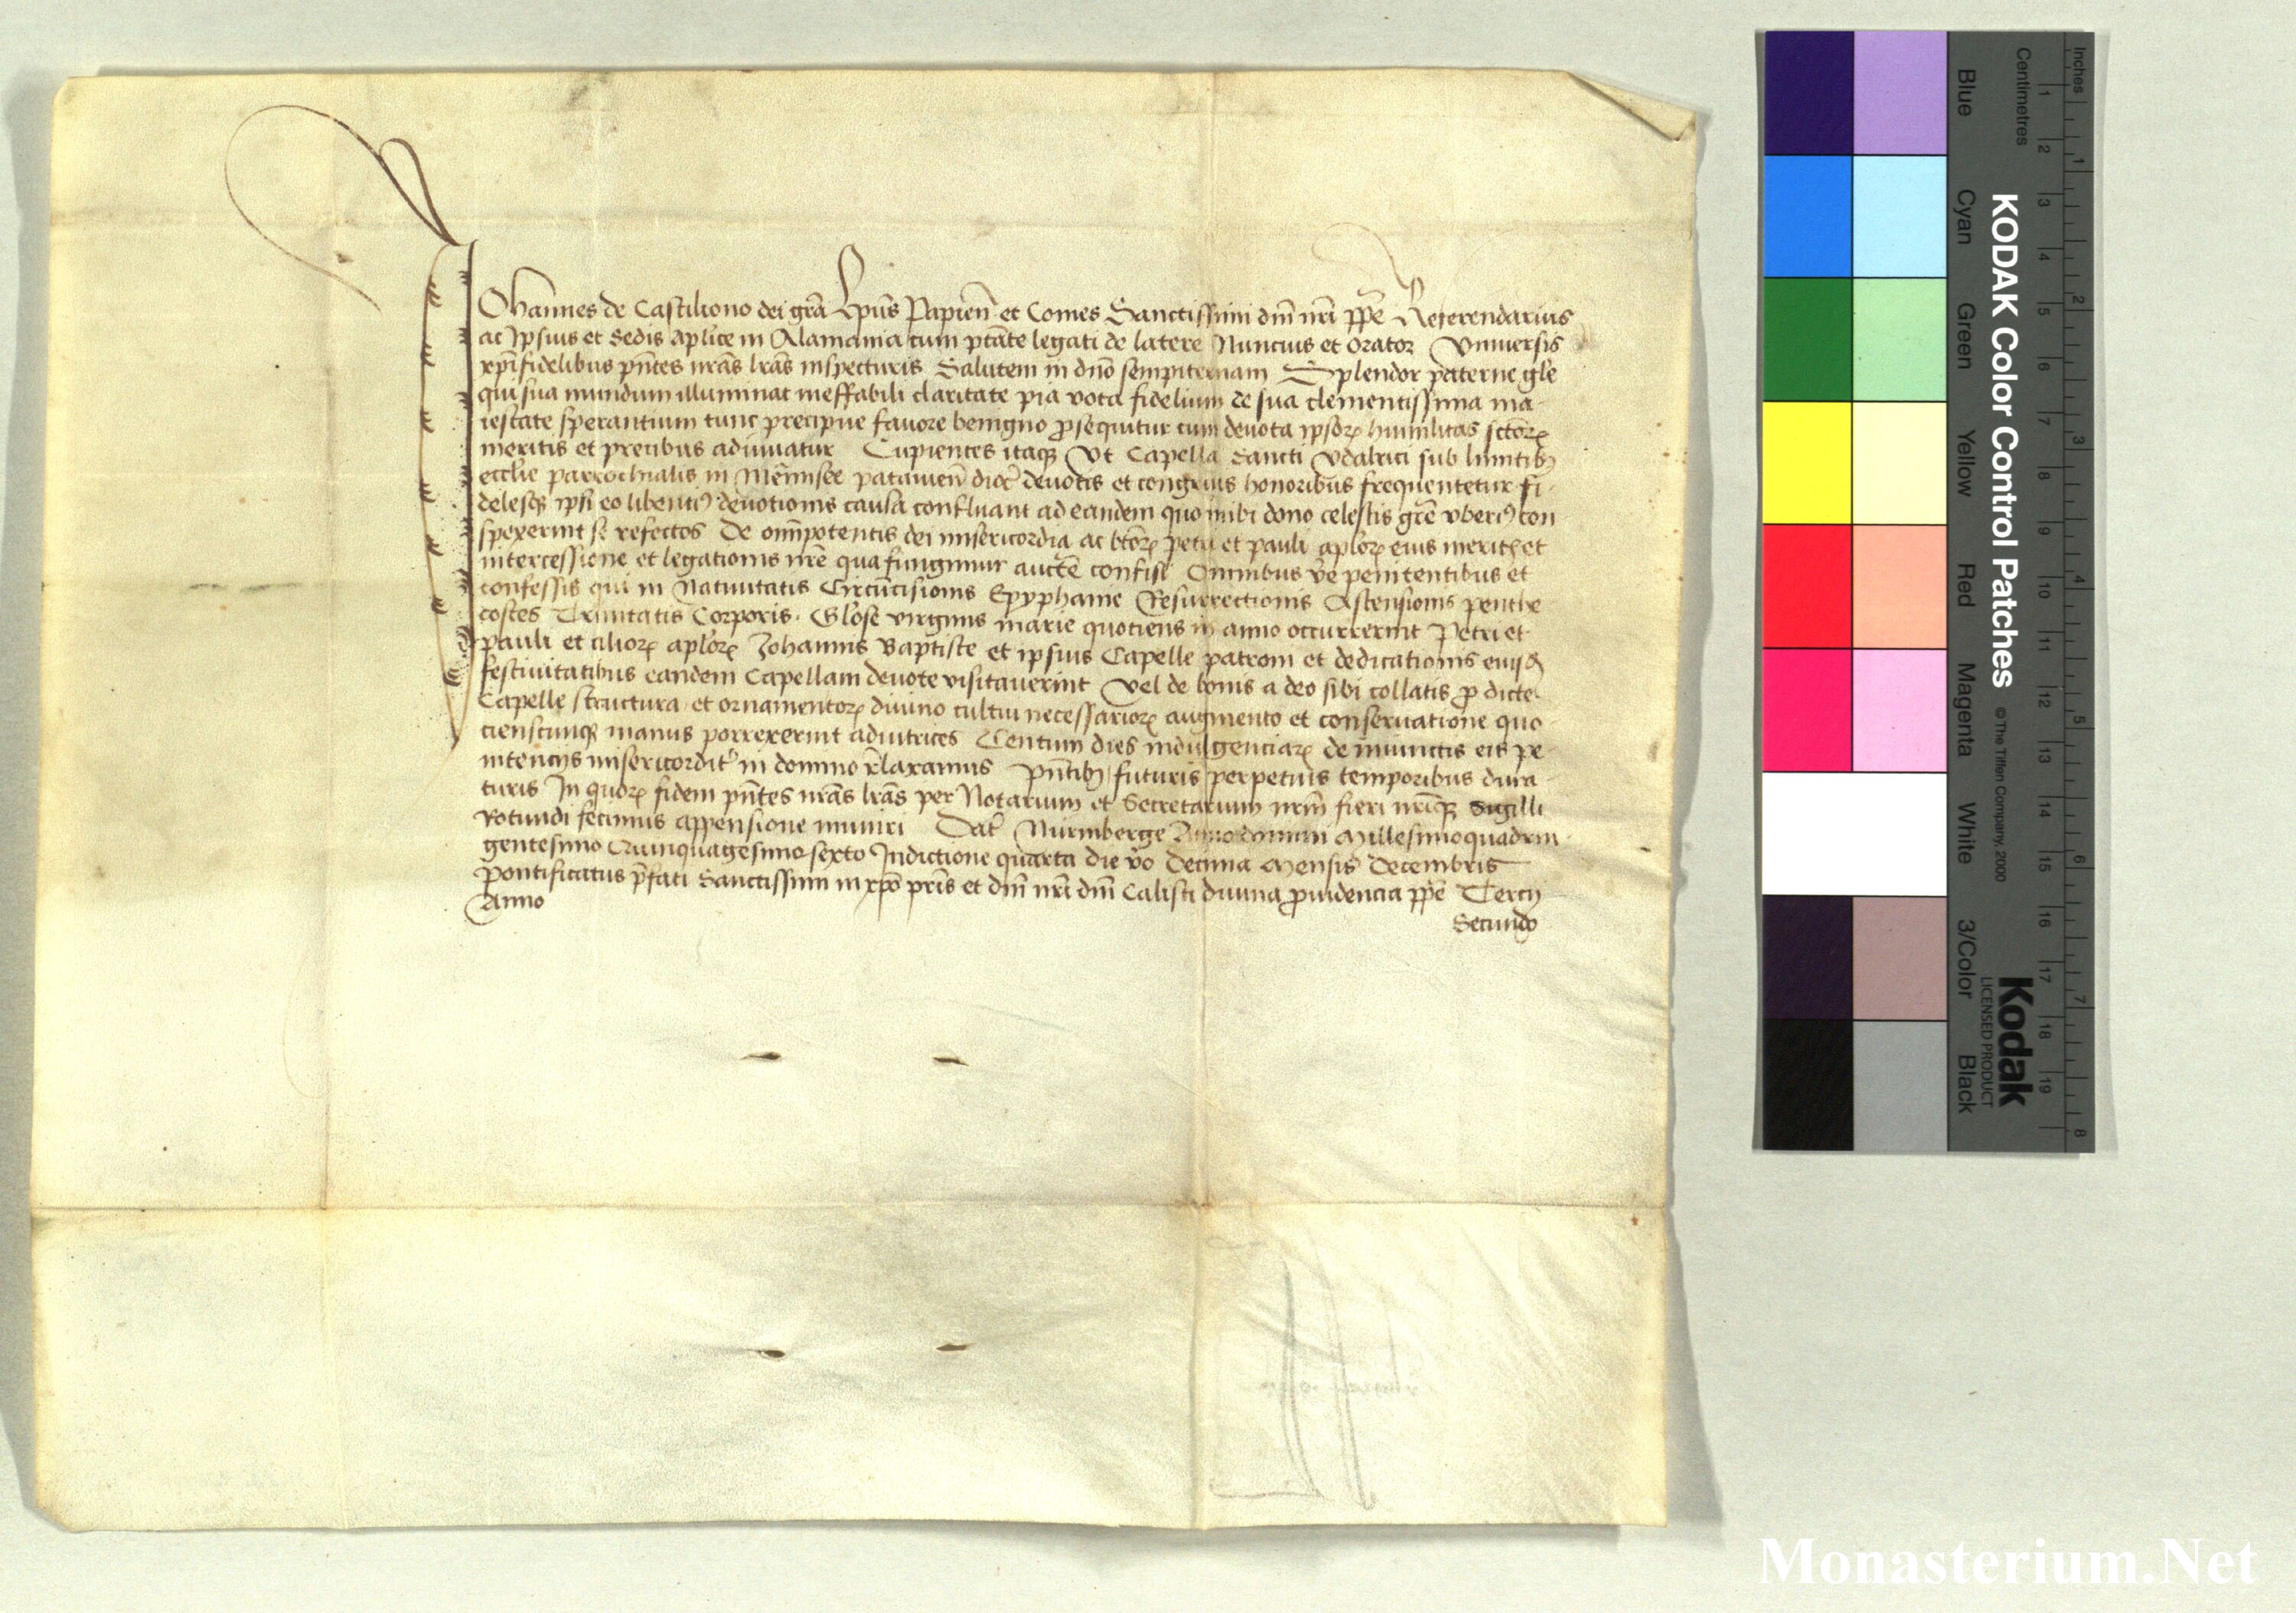 Johannes de Castiliono dei gr̄a Ep̄us Papien̄ et Comes Sanctissimi dn̄i nr̄i pp̄e Referendarius
ac ipsius et Sedis ap̄lice in Alamania cum ptāte legati de latere Nuncius et Orator Vniuersis
xp̄ifidelibus pn̄tes nr̄as lr̄as inspecturis Salutem in dn̄o sempiternam Splendor paterne gl̄e
qui sua mundum illuminat ineffabili claritate pia vota fidelium de sua clementissima ma-
iestate sperantium tunc precipue fauore benigno ꝓsequitur cum deuota ip̄soꝝ humilitas sctōꝝ
meritis et precibus adiuuatur Cupientes itaqꝫ Vt Capella Sancti Vdalrici sub limitibꝫ
ecclie parrochialis in Mēinsee patauien̄ dioc̄ deuotis et congruis honoribus frequentetur fi-
delesqꝫ ip̄i eo libentiꝰ deuotionis causa confluant ad eandem quo inibi dono celestis gr̄e vberiꝰ con
spexerint se refectos De om̄ipotentis dei misericordia ac btōꝝ petri et pauli ap̄loꝝ eius meritis et
intercessione et legationis nr̄e qua fungimur auctē confisi Omnibus vē penitentibus et
confessis qui in Natiuitatis Circūcisionis Epyphanie Resurrectionis Ascensionis penthe
costes Trinitatis Corporis. Gl̄ose virginis marie quotiens in anno occurrerint Petri et
pauli et alioꝝ ap̄loꝝ Johannis Baptiste et ipsius Capelle patroni et dedicationis eiusdē
festiuitatibus eandem Capellam deuote visitauerint Vel de bonis a deo sibi collatis ꝓ dicte
Capelle structura et ornamentoꝝ diuino cultui necessarioꝝ augmento et conseruatione quo-
cienscunqꝫ manus porrexerint adiutrices Centum dies indulgenciaꝝ de iniunctis eis pe-
nitencijs misericordit̄ in domino r̄laxamus pn̄tibꝫ futuris perpetuis temporibus dura-
turis In quoꝝ fidem pn̄tes nr̄as lr̄as per Notarium et Secretarium nr̄m fieri nr̄iqꝫ Sigilli
Rotundi fecimus appensione muniri Dat̄ Nurmberge Anno domini Millesimo quadrin-
gentesimo Quinquagesimo sexto Indictione quarta die v̄o Decima Mensis Decembris
Pontificatus p̄fati Sanctissimi in xp̄o pr̄is et dn̄i nr̄i dn̄i Calisti diuina ꝓuidencia pp̄e Tercij
Anno
Secundo
Inches
Centimetres
KODAK Color Control Patches
© The Tiffen Company, 2000
Kodak
LICENSED PRODUCT
Blue Cyan Green Yellow Red Magenta White 3/Color Black
1 2 3 4 5 6 7 8 9 10 11 12 13 14 15 16 17 18 19
1 2 3 4 5 6 7 8
Monasterium.Net